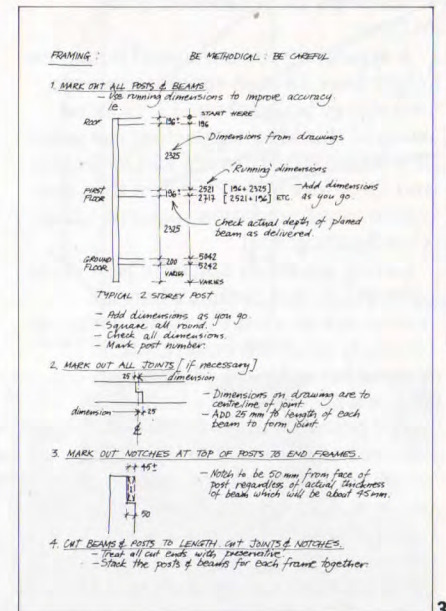 FRAMING : BE METHODICAL : BE CAREFUL
1. MARK OUT ALL POSTS & BEAMS
- Use running dimensions to improve accuracy
ie.
START HERE
ROOF 196± 196
Dimensions from drawings
2325
'Running' dimensions
FIRST FLOOR 196± 2521 [196+2325] - Add dimensions
2717 [2521+196] ETC. as you go.
Check actual depth of planed
beam as delivered.
2325
GROUND FLOOR 200 5042
5242
VARIES VARIES
TYPICAL 2 STOREY POST
- Add dimensions as you go.
- Square all round.
- Check all dimensions.
- Mark post number.
2. MARK OUT ALL JOINTS [if necessary]
25 dimension
- Dimensions on drawing are to
centreline of joint.
dimension 25
- ADD 25 mm to length of each
beam to form joint.
℄
3. MARK OUT NOTCHES AT TOP OF POSTS TO END FRAMES.
45±
- Notch to be 50 mm from face of
post regardless of actual thickness
of beam which will be about 45 mm.
50
4. CUT BEAMS & POSTS TO LENGTH. CUT JOINTS & NOTCHES.
- Treat all cut ends with preservative.
- Stack the posts & beams for each frame together.